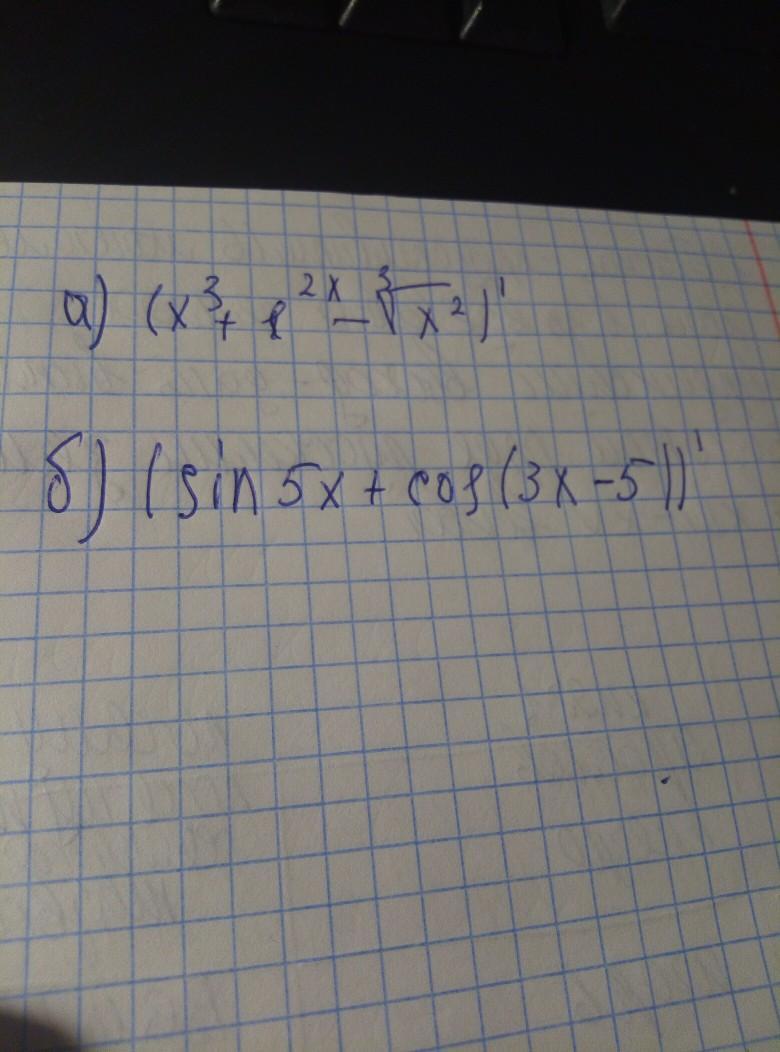 а) (x³ + e²ˣ - ∛x²)'
б) (sin 5x + cos(3x-5))'